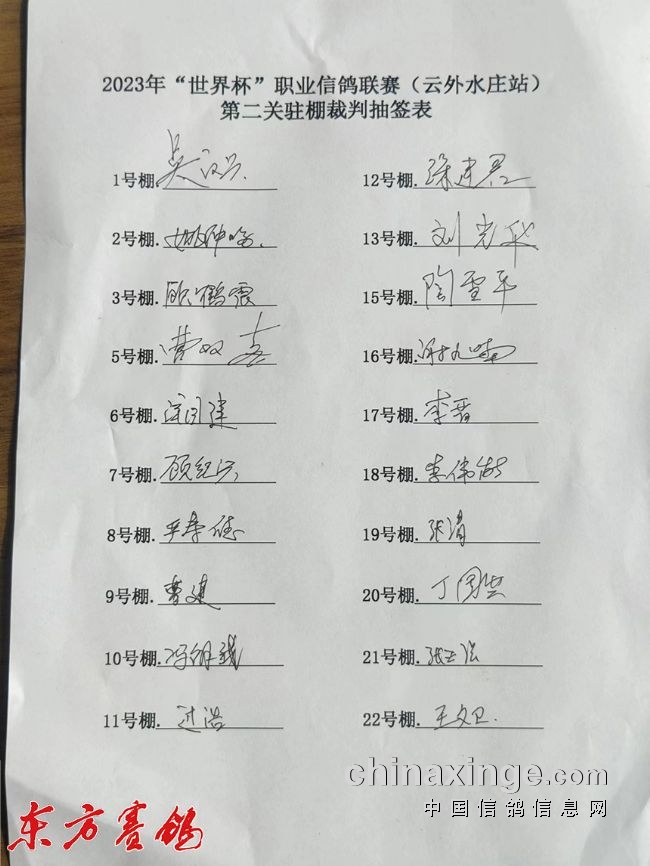 2023年“世界杯”职业信鸽联赛（云外水庄站）
第二关驻棚裁判抽签表
1号棚.
2号棚.
3号棚.顾鹤震
5号棚.曹双喜
6号棚.
7号棚.顾纪兴
8号棚.
9号棚.曹建
10号棚.
11号棚.过浩
12号棚.徐建君
13号棚.刘光华
15号棚.陶雪平
16号棚.
17号棚.李晋
18号棚.李伟
19号棚.张清
20号棚.丁国洪
21号棚.
22号棚.王文卫
chinaxinge.com
中国信鸽信息网
东方赛鸽